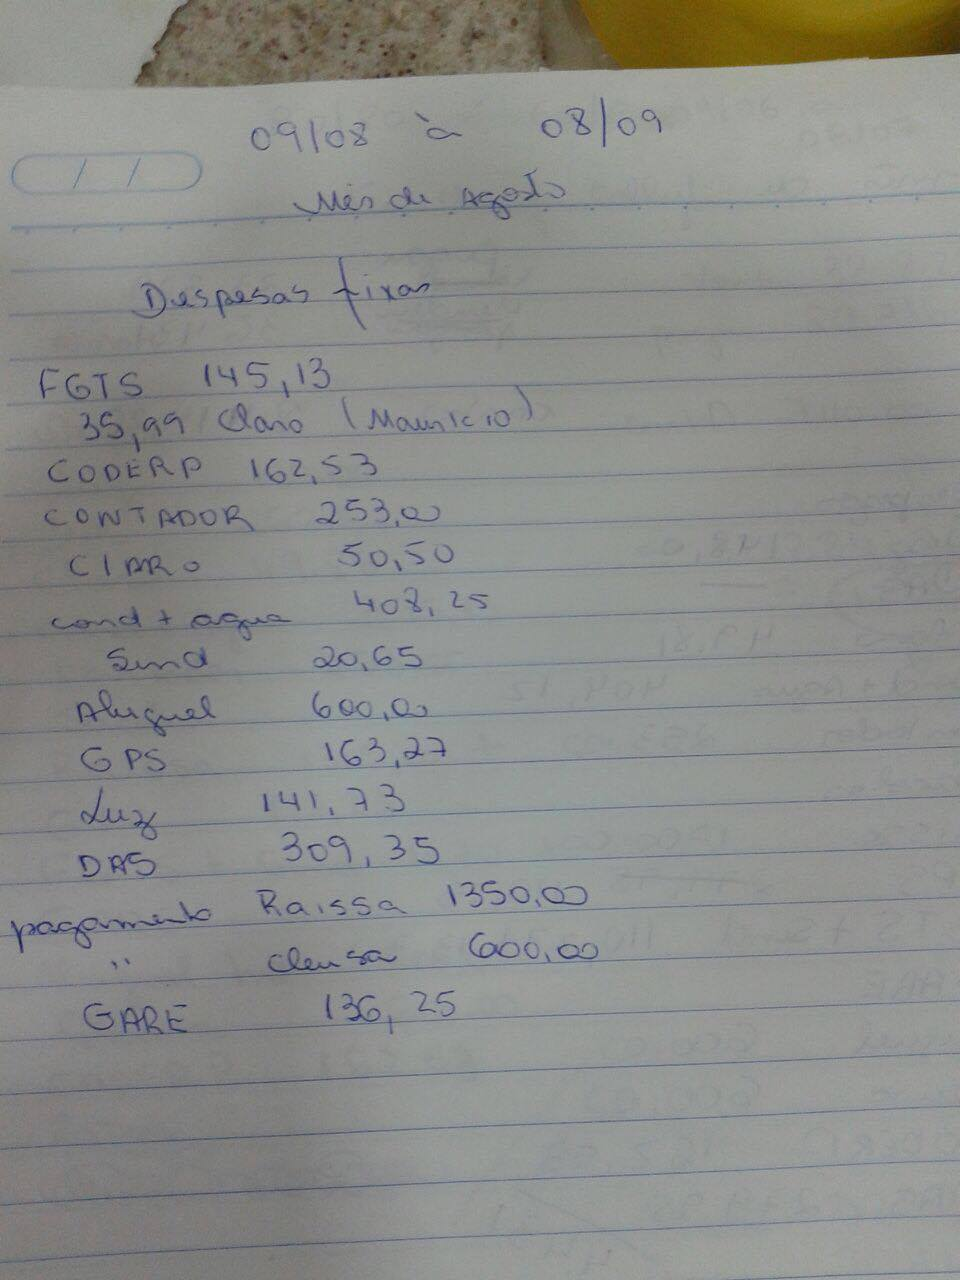 09/08 à 08/09
Mês de Agosto
Despesas fixas
FGTS 145,13
35,99 Claro (Mauricio)
CODERP 162,53
CONTADOR 253,00
CLARO 50,50
cond + agua 408,25
Sind 20,65
Aluguel 600,00
GPS 163,27
Luz 141,73
DAS 309,35
pagamento Raissa 1350,00
" Cleusa 600,00
GARE 136,25